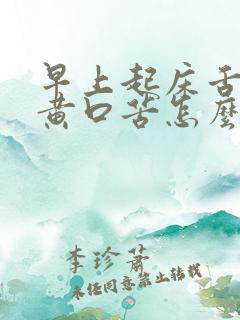 早上起床舌
黄口苦怎麽
李珍萧
未经同意禁止转载